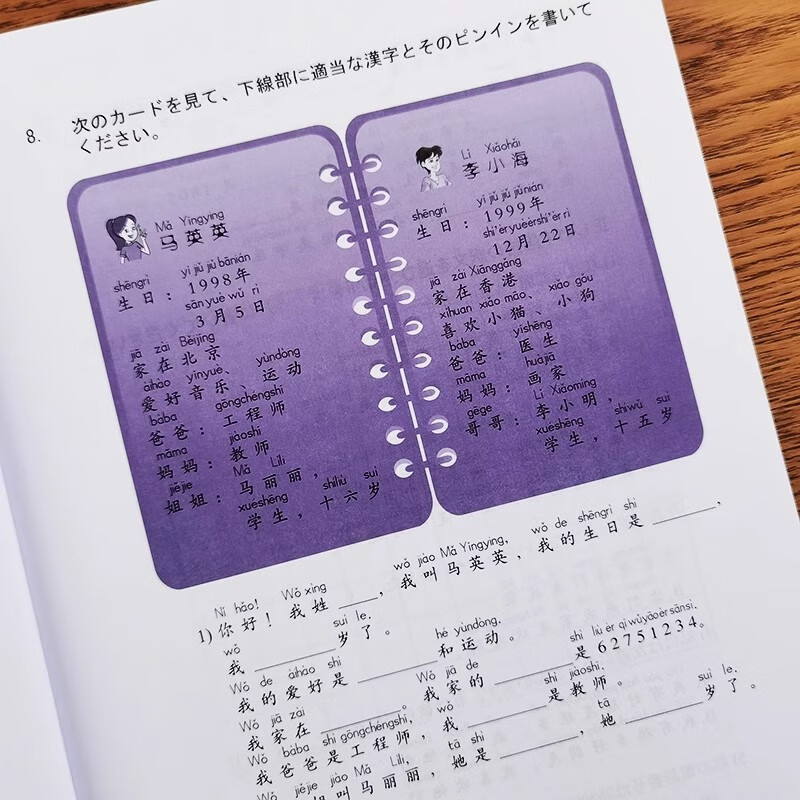 8. 次のカードを見て、下線部に適当な漢字とそのピンインを書いて
ください。
Mǎ Yīngying
马英英
shēngrì yī jiǔ jiǔ bānián
生日：1998年
sānyuè wǔ rì
3月5日
jiā zài Běijīng
家在北京
àihào yīnyuè、 yùndòng
爱好音乐、运动
bàba gōngchéngshī
爸爸：工程师
māma jiàoshī
妈妈：教师
jiějie Mǎ Lìlì
姐姐：马丽丽，
xuéshēng shíliù suì
学生，十六岁
Lǐ Xiǎohǎi
李小海
shēngrì yī jiǔ jiǔ jiǔnián
生日：1999年
shí'èryuèèrshí'èr rì
12月22日
jiā zài Xiānggǎng
家在香港
xǐhuan xiǎo māo、 xiǎo gǒu
喜欢小猫、小狗
bàba yīshēng
爸爸：医生
māma huàjiā
妈妈：画家
gēge Lǐ Xiǎomíng
哥哥：李小明，
xuéshēng shíwǔ suì
学生，十五岁
Nǐ hǎo! Wǒ xìng wǒ jiào Mǎ Yīngying, wǒ de shēngrì shì
1) 你好！我姓____，我叫马英英，我的生日是______，
wǒ suì le.
我________岁了。
Wǒ de àihào shì hé yùndòng.
我的爱好是________和运动。
Wǒ jiā de shì liù èr qī wǔ yāo èr sān sì.
我家的________是62751234。
Wǒ jiā zài wǒ shì jiàoshī.
我家在________。我________是教师。
Wǒ bàba shì gōngchéngshī,
我爸爸是工程师，
jiějie jiào Mǎ Lìlì, tā shì tā suì le.
叫马丽丽，她是________，她________岁了。